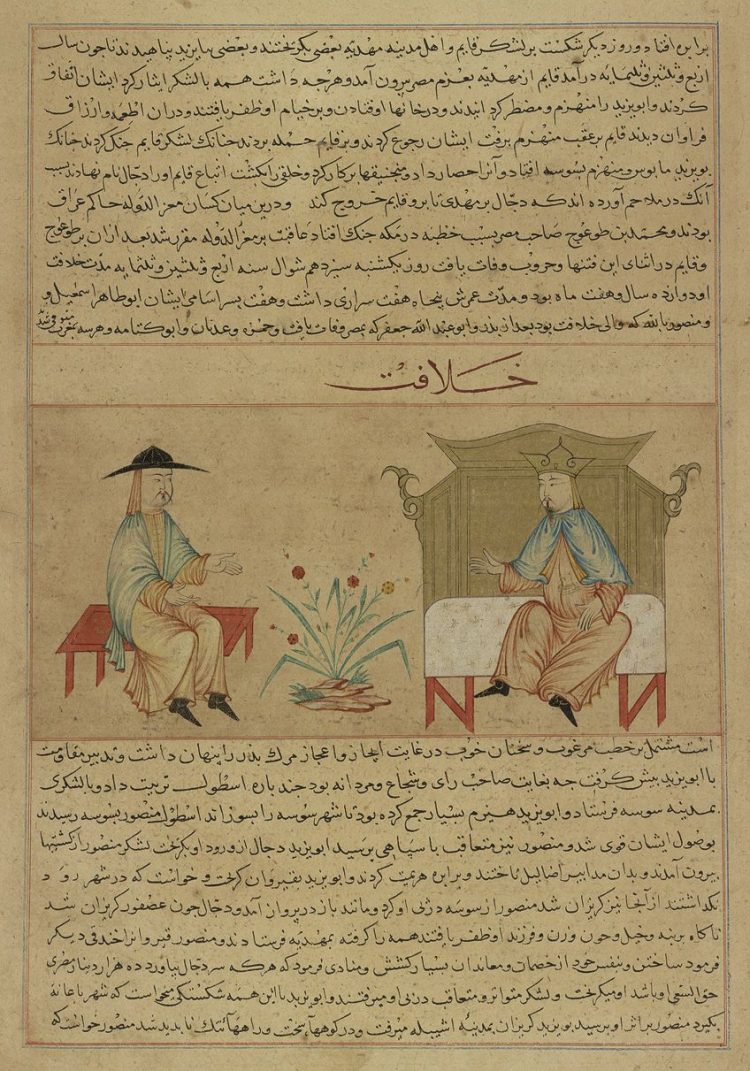 برابره افتاد و روز دیکر شکست بر لشکر قایم و اهل مدینه مهدیه بعضی بکریختند و بعضی با یزید پناهیدند تا چون سال
اربع و ثلثین و ثلثمایه درآمد قایم از مهدیه بعزم مصر بیرون آمد و هرچه داشت همه بالشکر ایثار کرد ایشان اتفاق
کردند و ابویزید را منهزم و مضطر کردانیدند و در خانها اوفتادن و بر خیام او ظفر یافتند و دران اطعمه و ارزاق
فراوان دیدند قایم بر عقب منهزم برفت ایشان رجوع کردند و بر قایم حمله بردند چنانک لشکر قایم جنک کردند چنانک
بویزید مایوس و منهزم بسوسه افتاد و آنرا حصار داد و منجنیقها بر کار کرد و خلقی را بکشت اتباع قایم او را دجال نام نهادند بسبب
آنک در ملاحم آورده اند که دجال بر مهدی تا بر قایم خروج کند و درین میان کسان معز الدوله حاکم عراق
بودند و محمد بن طوغوج صاحب مصر بسبب خطبه در مکه جنک افتاد عاقبت بر معز الدوله مقرر شد بعد ازان بر طوغوج
و قایم در اثنای این فتنها و حروب وفات یافت روز یکشنبه سیزدهم شوال سنه اربع و ثلثین و ثلثمایه مدت خلافت
او دوازده سال و هفت ماه بود و مدت عمرش پنجاه هفت سراری داشت و هفت پسر اسامی ایشان ابو طاهر اسمعیل و
و منصور بالله که والی خلافت بود بعد از پدر و ابو عبد الله جعفر که بمصر وفات یافت و حمزه و عدنان و ابو کتامه و هر سه بمغرب
خلافت
است مشتمل بر خطب مرغوب و سخنان خوب در غایت ایجاز و اعجاز مرک پدر را پنهان داشت و تدبیر مقاومت
با ابویزید پیش کرفت چه بغایت صاحب رای و شجاع و مردانه بود چند باره اسطول ترتیب داد و با لشکری
بمدینه سوسه فرستاد و ابویزید هیزم بسیار جمع کرده بود تا شهر سوسه را بسوزاند اسطول منصور بسوسه رسیدند
بوصول ایشان قوی شد و منصور نیز متعاقب با سپاهی برسید ابویزید دجال از ورود او بکریخت لشکر منصور از کشتیها
بیرون آمدند و بدان مدابیر اضالیل تاختند و برابر هزیمت کردند و ابویزید بقیروان کریخت و خواست که در شهر رود
نکذاشتند از آنجا نیز کریزان شد منصور از سوسه در پی او کرد و مانند باز در پرواز آمد و دجال چون عصفور کریزان شد
ناکاه برینه و خیل و زن و فرزند او ظفر یافتند همه را کرفته بمهدیه فرستادند و منصور قیروانرا خندقی دیکر
فرمود ساختن و بنفس خود از خصمان و معاندان بسیار بکشتش و منادی فرمود که هرکه سر دجال بیاورد ده هزار دینار مغربی
حق السعی او باشد او میکریخت و لشکر متواتر و متعاقب در پی او میرفتند و ابویزید با این همه شکستکی میخواست که شهر باغانه
بکیرد منصور بر اثر او برسید بویزید کریزان بمدینه اشبیله میرفت و در کوهها سخت و راهها تنک ناپدید شد منصور خواست که